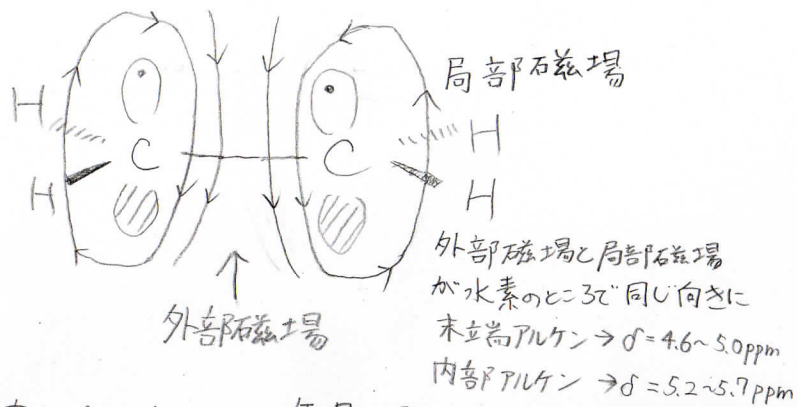 局部磁場
H
H
C
C
H
H
外部磁場
外部磁場と局部磁場
が水素のところで同じ向きに
末端アルケン→δ=4.6~5.0ppm
内部アルケン→δ=5.2~5.7ppm